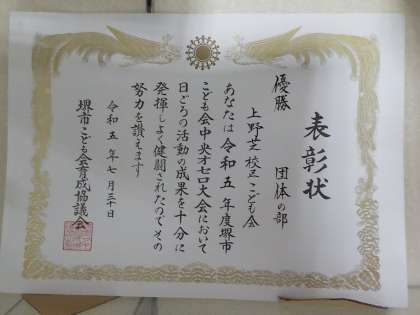 表彰状
優勝 団体の部
上野芝校区こども会
あなたは令和五年度堺市
こども会中央オセロ大会において
日ごろの活動の成果を十分に
発揮しよく健闘されたのでその
努力を讃えます
令和五年七月三十日
堺市こども会育成協議会